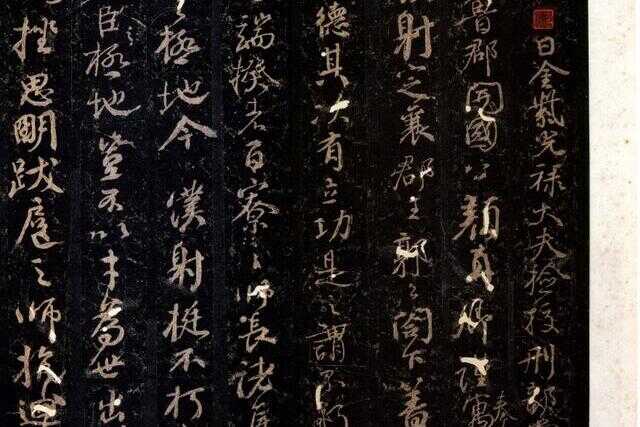 日金紫光祿大夫檢校刑部
魯郡開國公顏真卿謹寓奉
射定襄郡王郭公閣下蓋
德其次有立功是之謂不朽
端揆者百寮之師長諸侯
極地今僕射挺不朽
臣之極地豈不以才為世出
挫思明跋扈之師抗迴